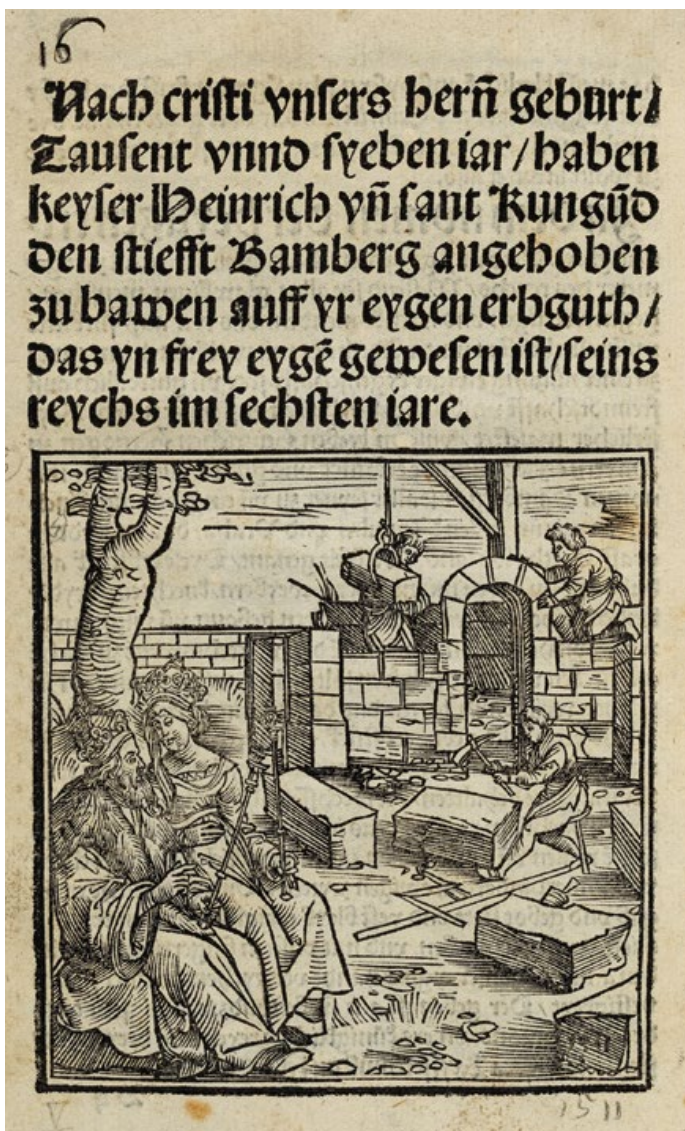 16
Nach cristi vnsers herñ geburt/
Tausent vnnd syeben iar/haben
keyser Heinrich vñ sant Kungūd
den stiefft Bamberg angehoben
zu bawen auff yr eygen erbguth/
das yn frey eygē gewesen ist/seins
reychs im sechsten iare.
1511